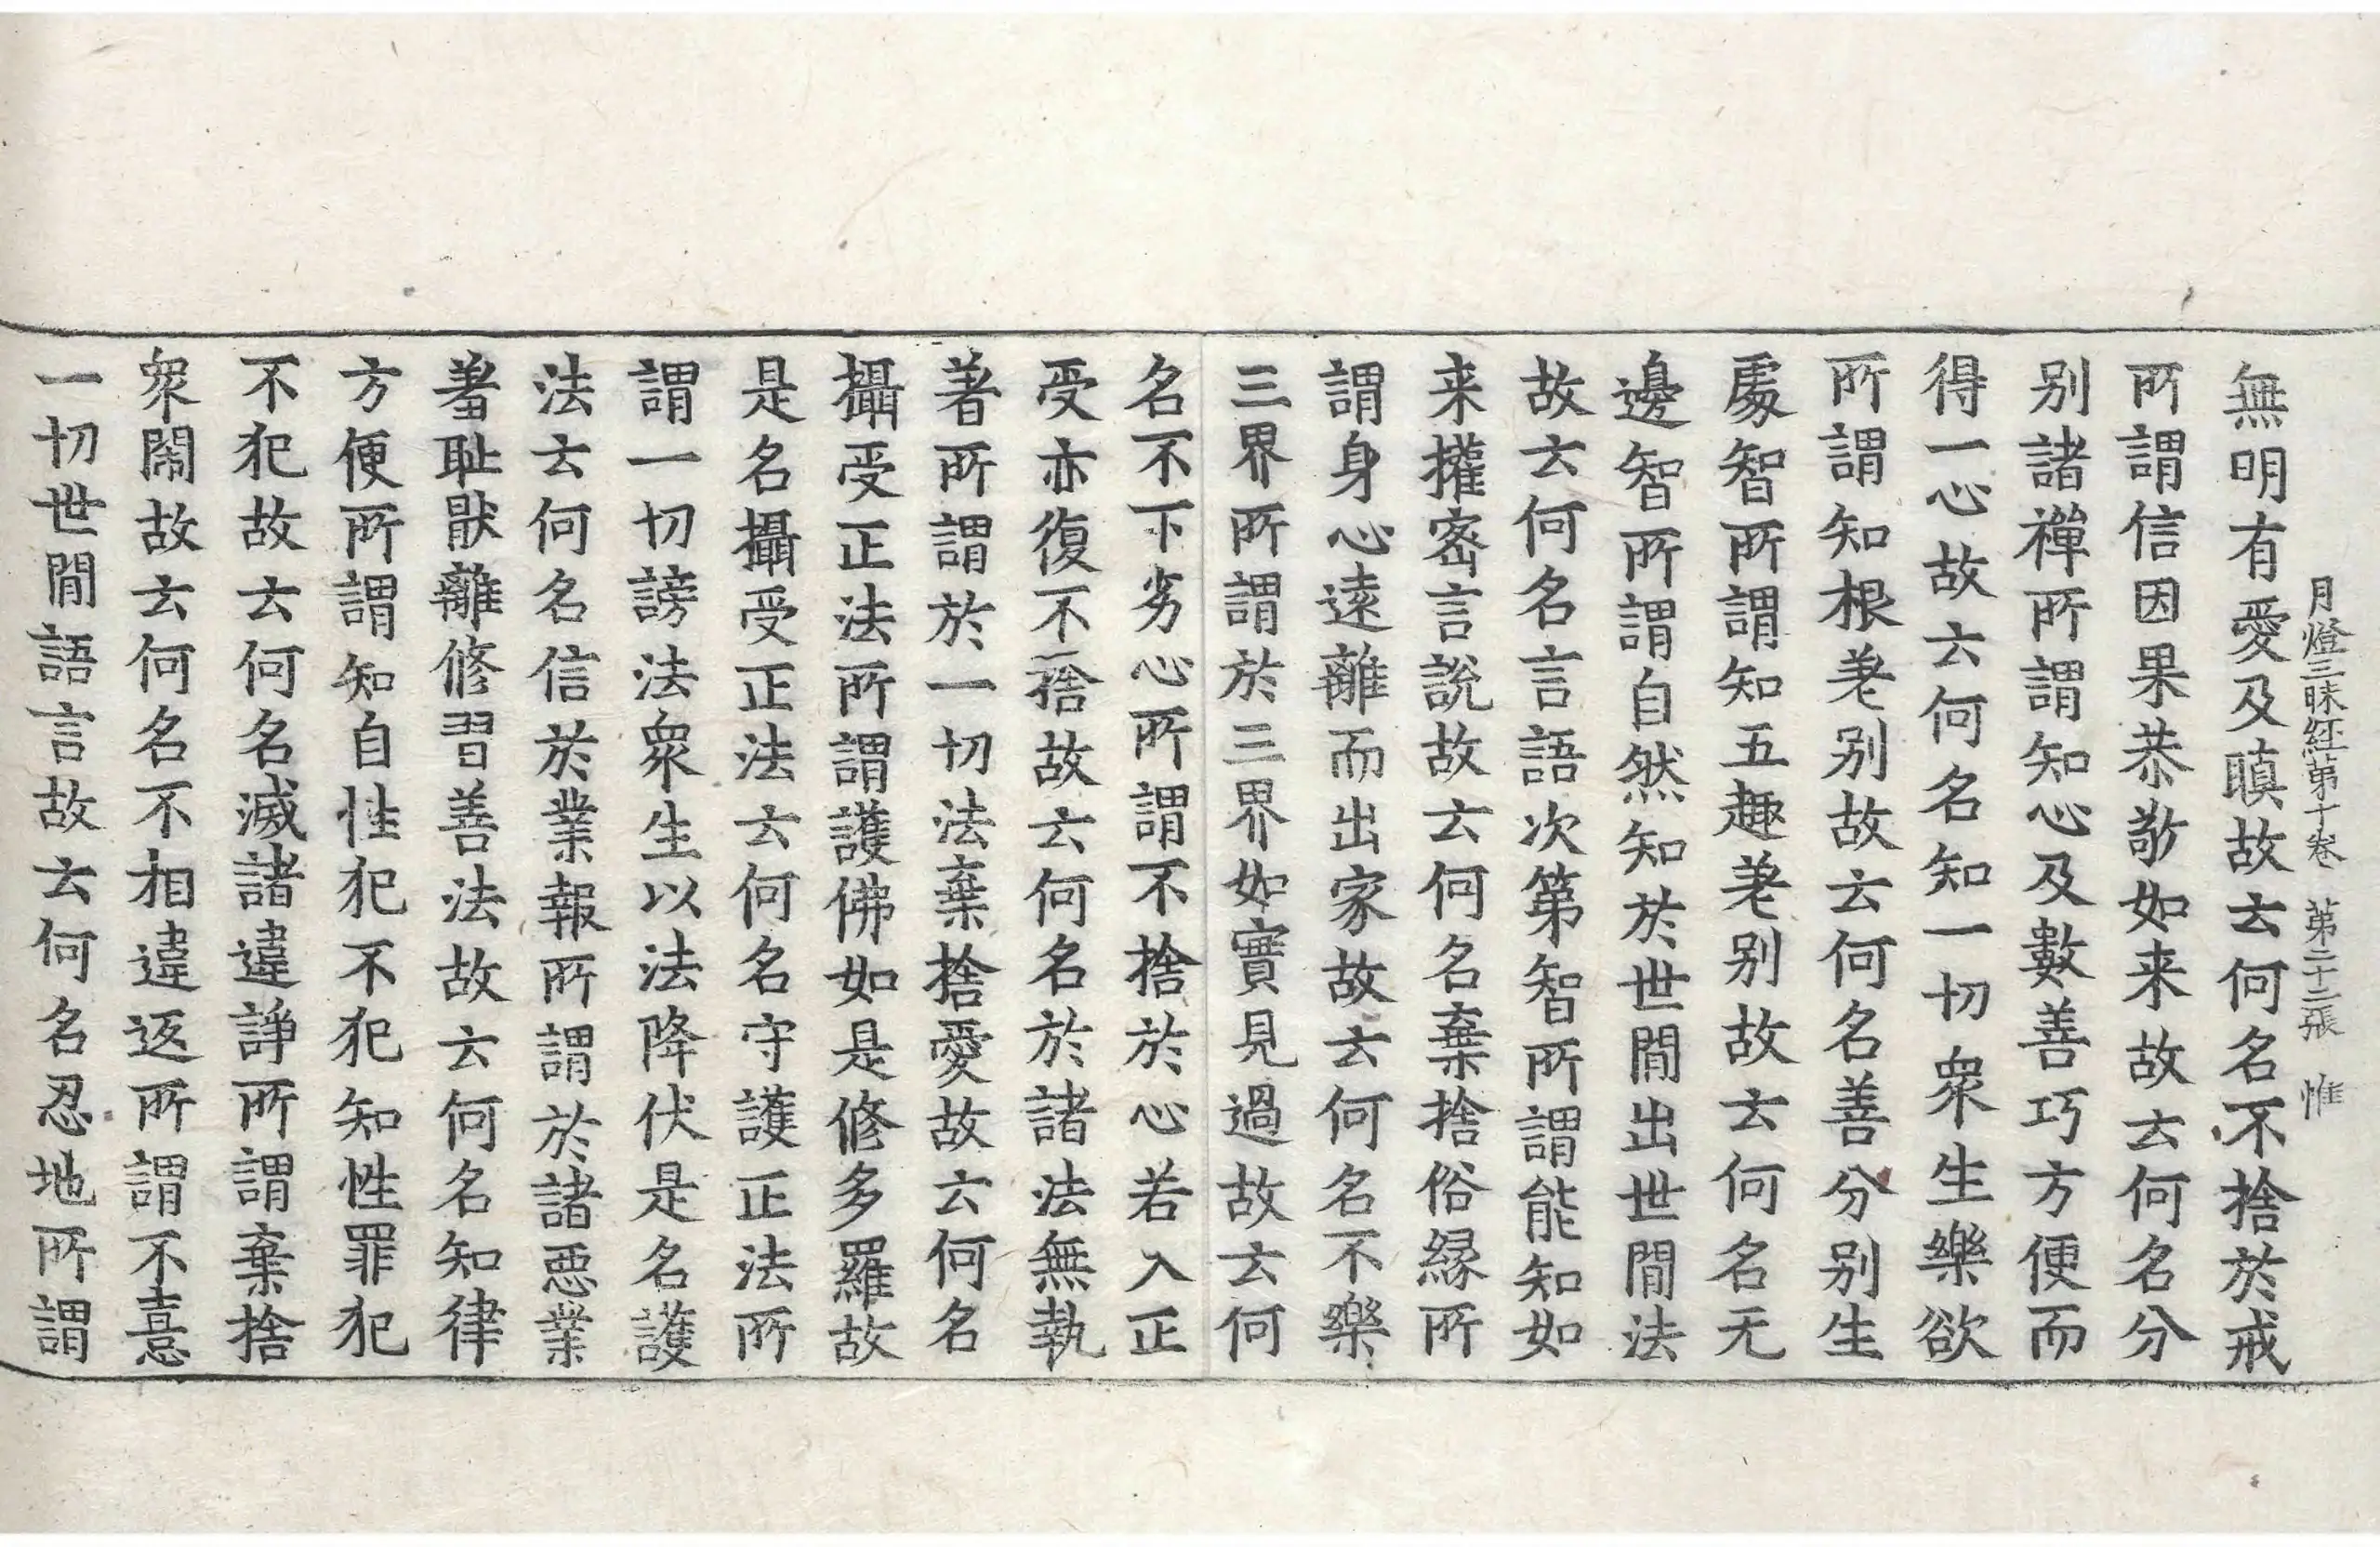 月燈三昧経第十卷　第二十二張　惟
無明有愛及瞋故去何名不捨於戒
所謂信因果恭敬如来故去何名分
别諸禪所謂知心及數善巧方便而
得一心故去何名知一切衆生樂欲
所謂知根差别故去何名善分别生
處智所謂知五趣差别故去何名无
邊智所謂自然知於世閒出世閒法
故去何名言語次第智所謂能知如
来權密言說故去何名棄捨俗緣所
謂身心遠離而出家故去何名不樂
三界所謂於三界如實見過故去何
名不下劣心所謂不捨於心若入正
受亦復不捨故去何名於諸法無執
著所謂於一切法棄捨愛故去何名
攝受正法所謂護佛如是修多羅故
是名攝受正法去何名守護正法所
謂一切謗法衆生以法降伏是名護
法去何名信於業報所謂於諸惡業
羞耻猒離修習善法故去何名知律
方便所謂知自性犯不犯知性罪犯
不犯故去何名滅諸違諍所謂棄捨
衆閙故去何名不相違返所謂不憙
一切世閒語言故去何名忍地所謂